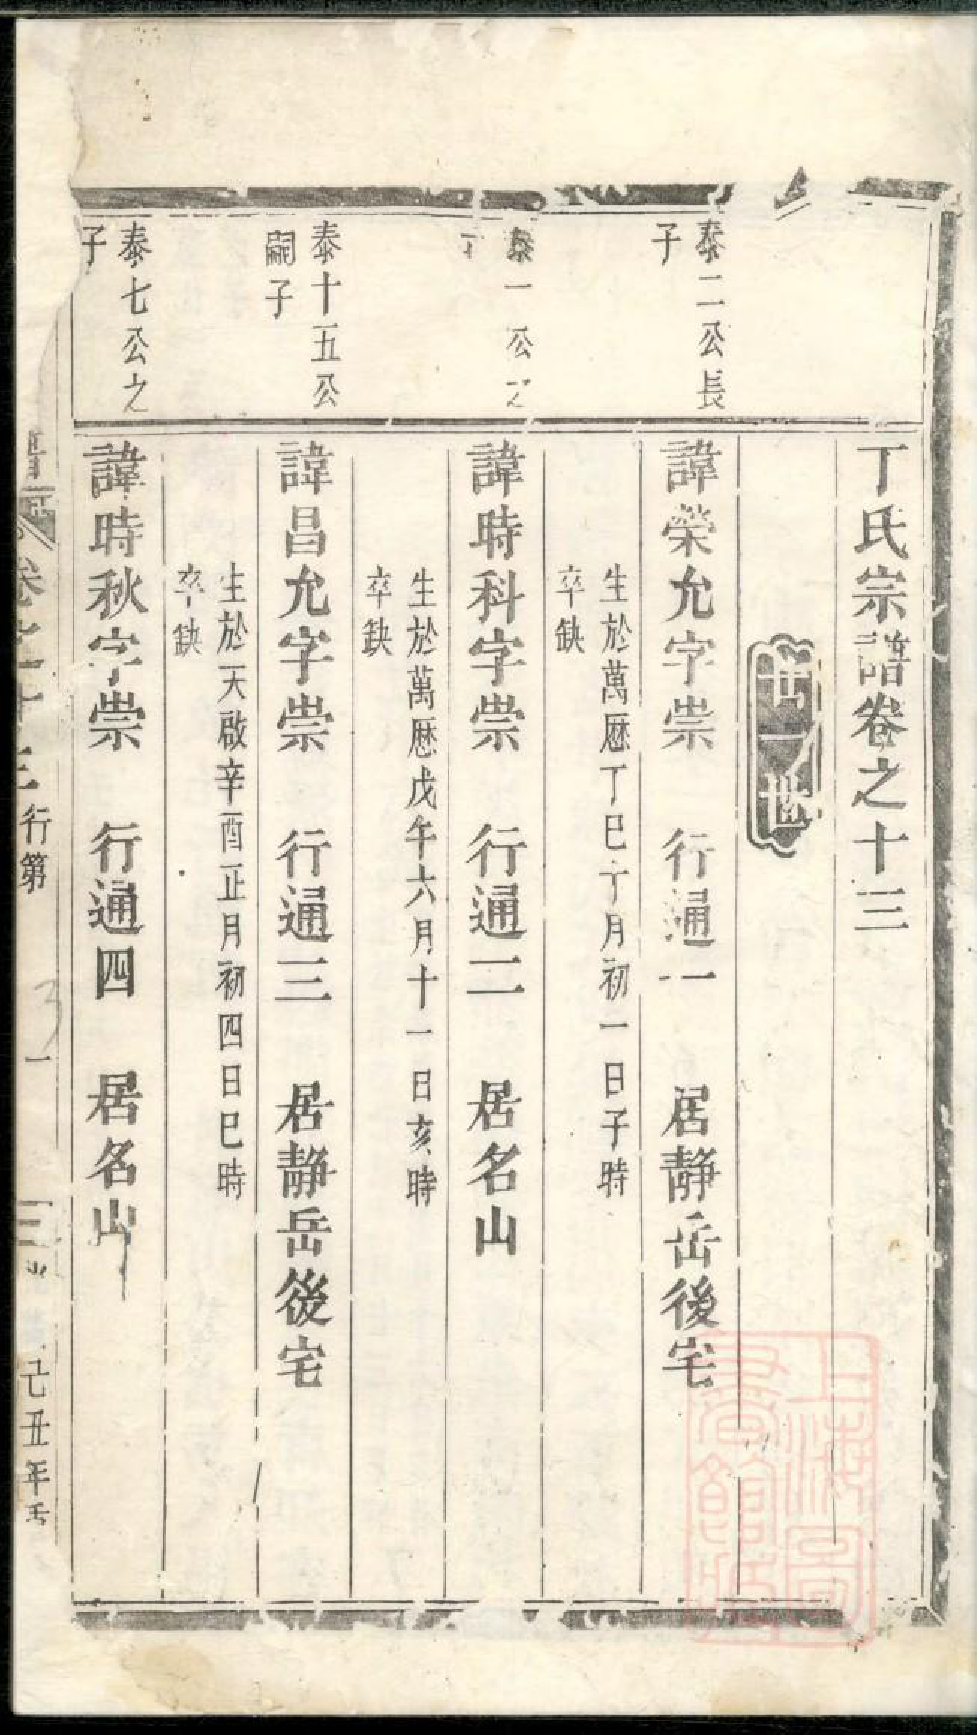 丁氏宗譜卷之十三
世一世
泰二公長
子
諱榮允字崇 行通一 居靜岳後宅
生於萬厯丁巳十月初一日子時
卒缺
泰一公之
子
諱時科字崇 行通二 居名山
生於萬厯戊午六月十一日亥時
卒缺
泰十五公
嗣子
諱昌允字崇 行通三 居靜岳後宅
生於天啟辛酉正月初四日巳時
卒缺
泰七公之
子
諱時秋字崇 行通四 居名山
卷之十三 行第 一 己丑年
上海圖
書館藏